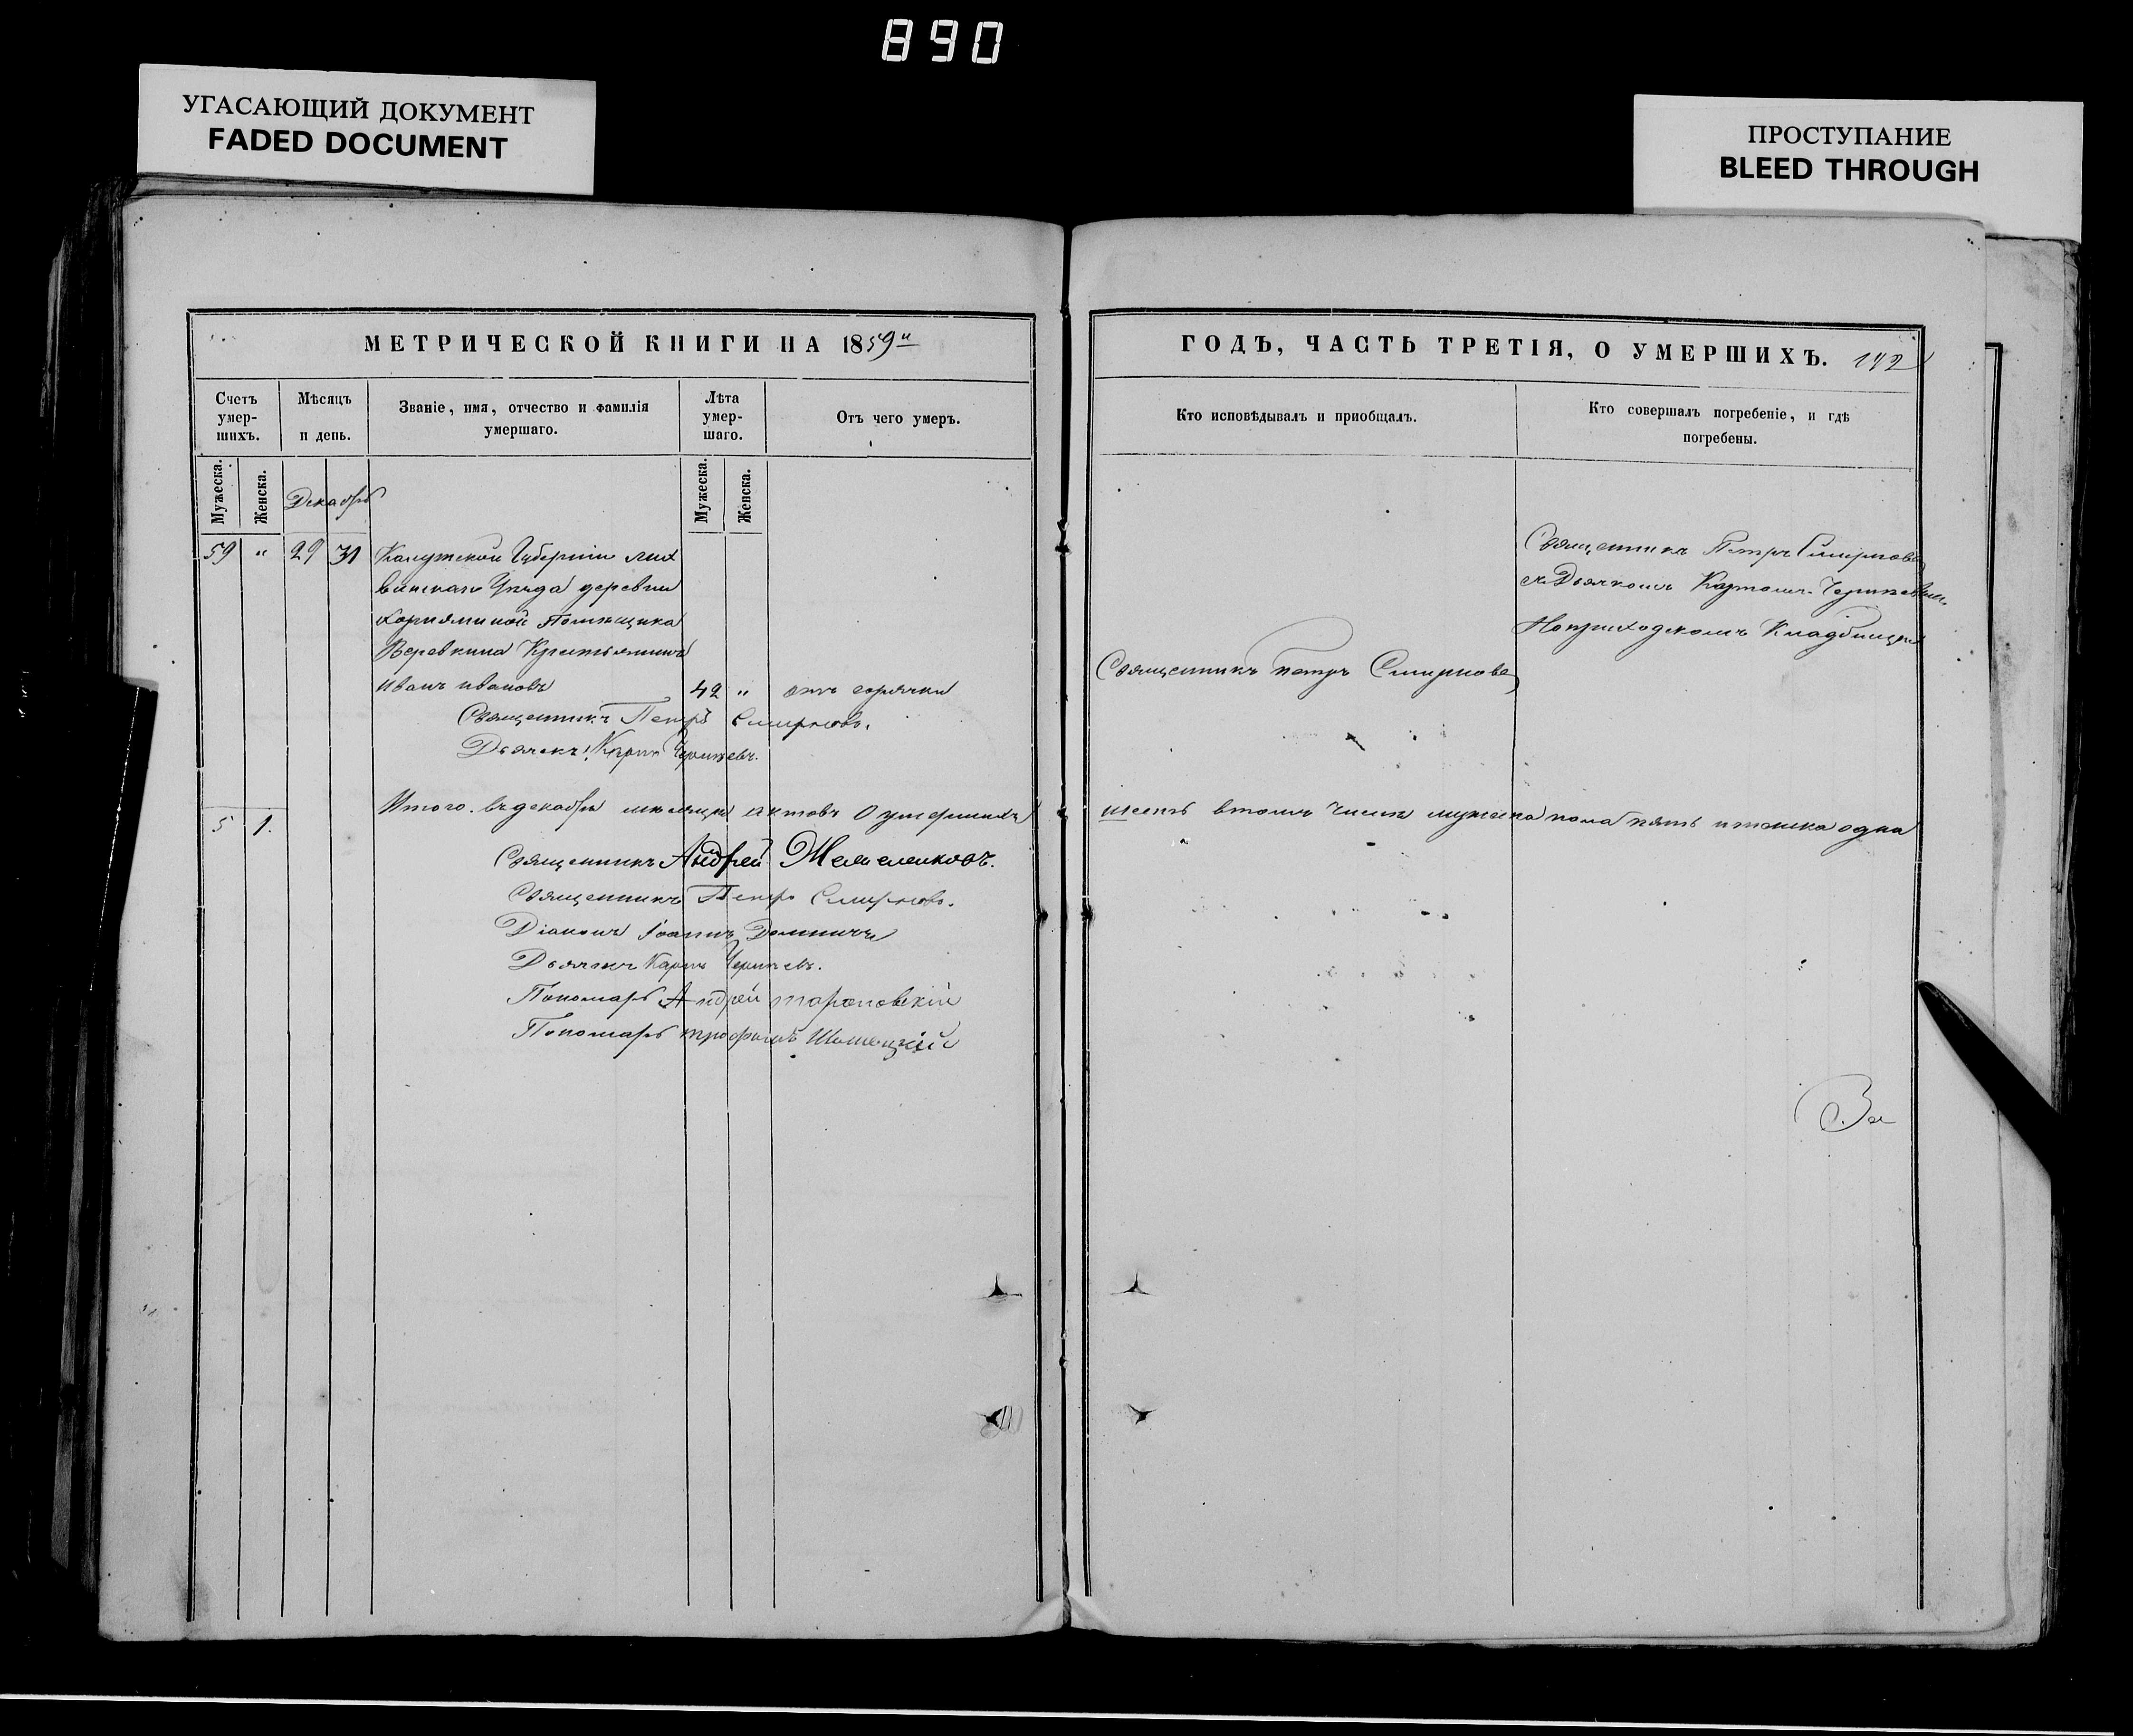 890
УГАСАЮЩИЙ ДОКУМЕНТ
FADED DOCUMENT
ПРОСТУПАНИЕ
BLEED THROUGH
МЕТРИЧЕСКОЙ КНИГИ НА 1859й
Счетъ умер-шихъ.
Мѣсяцъ и день.
Званіе, имя, отчество и фамилія умершаго.
Лѣта умер-шаго.
Отъ чего умеръ.
Мужеска.
Женска.
Декабрь
Мужеска.
Женска.
59 " 29 31 Калужской Губерніи лих
винскаго Уѣзда деревни
Помѣщика
Веревкина Крестьянинъ
Иванъ ивановъ 42 " отъ горячки
Священникъ Петръ Смирновъ.
Дьячекъ Карпъ
Итого въ декабрѣ мѣсяцѣ актовъ О умершихъ
5 1.
Священникъ Андрей
Священникъ Петръ Смирновъ.
Діаконъ Іоаннъ
Дьячекъ Карпъ
Пономарь Андрей
Пономарь трофимъ
ГОДЪ, ЧАСТЬ ТРЕТІЯ, О УМЕРШИХЪ. 142
Кто исповѣдывалъ и приобщалъ.
Кто совершалъ погребеніе, и гдѣ погребены.
Священникъ Петръ Смирновъ
съ Дьячкомъ Карпомъ
На приходскомъ Кладбищѣ
Священникъ петръ Смирновъ
шесть втомъ числѣ мужеска пола пять и женска одна